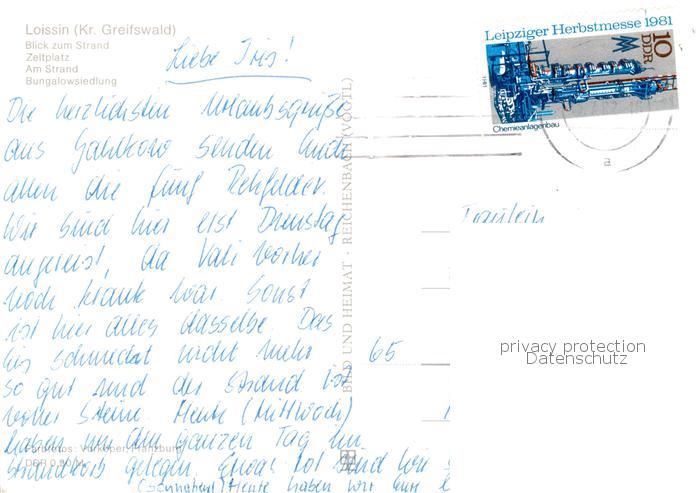 Loissin (Kr. Greifswald)
Blick zum Strand
Zeltplatz
Am Strand
Bungalowsiedlung
Leipziger Herbstmesse 1981
10
DDR
1981
Chemieanlagenbau
Liebe Iris!
Die herzlichsten Urlaubsgrüße
aus Gahlkow senden
allen die fünf Rehfelder.
Wir sind hier erst Dienstag
angereist, da Vati vorher
noch krank war. Sonst
ist hier alles dasselbe. Das
Eis schmeckt nicht mehr
so gut und der Strand ist
voller Steine. Heute (Mittwoch)
haben wir den ganzen Tag im
Strandkorb gelegen. Etwas rot sind wir
(Sonnabend) Heute haben wir
65
Fräulein
BILD UND HEIMAT · REICHENBACH (VOGTL)
a
privacy protection
Datenschutz